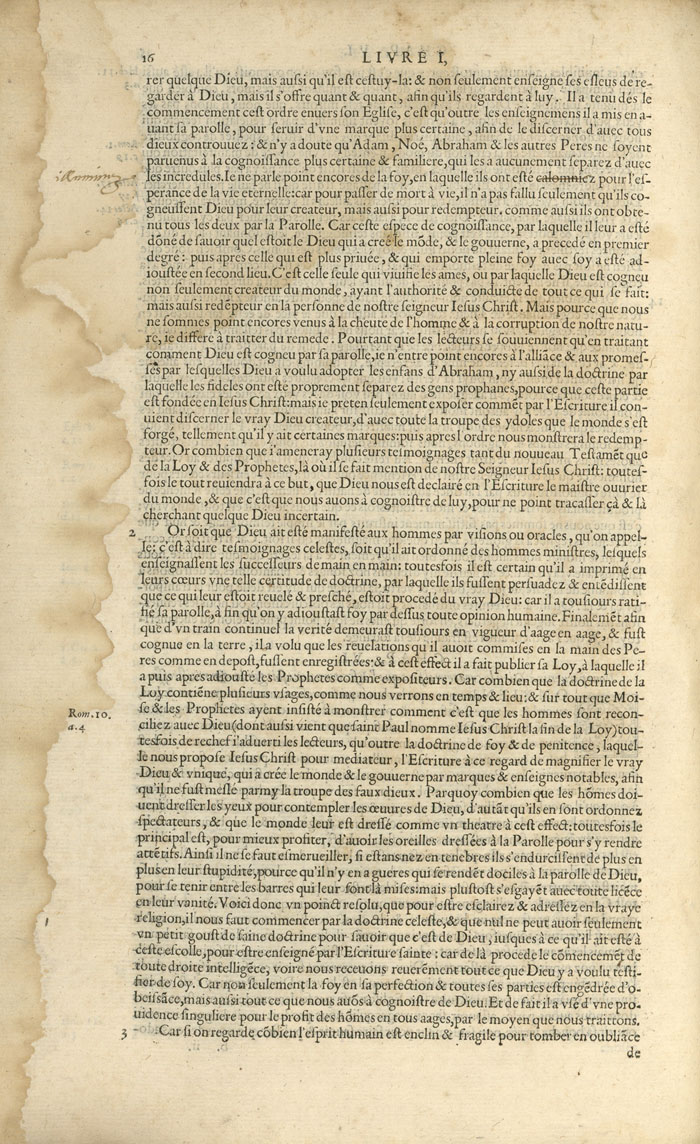 16 LIVRE I,
rer quelque Dieu, mais aussi qu'il est cestuy-la: & non seulement enseigne ses esleus de re-
garder à Dieu, mais il s'offre quant & quant, afin qu'ils regardent à luy. Il a tenu dés le
commencement cest ordre enuers son Eglise, c'est qu'outre les enseignemens il a mis en a-
uant sa parolle, pour seruir d'vne marque plus certaine, afin de le discerner d'auec tous
dieux controuuez: & n'y a doute qu'Adam, Noé, Abraham & les autres Peres ne soyent
paruenus à la cognoissance plus certaine & familiere, qui les a aucunement separez d'auec
les incredules. Ie ne parle point encores de la foy, en laquelle ils ont esté calomniez pour l'es-
perance de la vie eternelle: car pour passer de mort à vie, il n'a pas fallu seulement qu'ils co-
gneussent Dieu pour leur createur, mais aussi pour redempteur. comme aussi ils ont obte-
nu tous les deux par la Parolle. Car ceste espece de cognoissance, par laquelle il leur a esté
dōné de sauoir quel estoit le Dieu qui a creé le mōde, & le gouuerne, a precedé en premier
degré: puis apres celle qui est plus priuée, & qui emporte pleine foy auec soy a esté ad-
ioustée en second lieu. C'est celle seule qui viuifie les ames, ou par laquelle Dieu est cogneu
non seulement createur du monde, ayant l'authorité & conduicte de tout ce qui se fait:
mais aussi redēpteur en la personne de nostre seigneur Iesus Christ. Mais pource que nous
ne sommes point encores venus à la cheute de l'homme & à la corruption de nostre natu-
re, ie differe à traitter du remede. Pourtant que les lecteurs se souuiennent qu'en traitant
comment Dieu est cogneu par sa parolle, ie n'entre point encores à l'alliāce & aux promes-
ses par lesquelles Dieu a voulu adopter les enfans d'Abraham, ny aussi de la doctrine par
laquelle les fideles ont esté proprement separez des gens prophanes, pource que ceste partie
est fondée en Iesus Christ: mais ie preten seulement exposer commēt par l'Escriture il con-
uient discerner le vray Dieu createur, d'auec toute la troupe des ydoles que le monde s'est
forgé, tellement qu'il y ait certaines marques: puis apres l ordre nous monstrera le redemp-
teur. Or combien que i'ameneray plusieurs tesmoignages tant du nouueau Testamēt que
de la Loy & des Prophetes, là où il se fait mention de nostre Seigneur Iesus Christ: toutes-
fois le tout reuiendra à ce but, que Dieu nous est declairé en l'Escriture le maistre ouurier
du monde, & que c'est que nous auons à cognoistre de luy, pour ne point tracasser çà & là
cherchant quelque Dieu incertain.
2 Or soit que Dieu ait esté manifesté aux hommes par visions ou oracles, qu'on appel-
le: c'est à dire tesmoignages celestes, soit qu'il ait ordonné des hommes ministres, lesquels
enseignassent les successeurs de main en main: toutesfois il est certain qu'il a imprimé en
leurs cœurs vne telle certitude de doctrine, par laquelle ils fussent persuadez & entēdissent
que ce qui leur estoit reuelé & presché, estoit procedé du vray Dieu: car il a tousiours rati-
fié sa parolle, à fin qu'on y adioustast foy par dessus toute opinion humaine. Finalemēt afin
que d'vn train continuel la verité demeurast tousiours en vigueur d'aage en aage, & fust
cognue en la terre, il a volu que les reuelations qu'il auoit commises en la main des Pe-
res comme en depost, fussent enregistrées: & à cest effect il a fait publier sa Loy, à laquelle il
a puis apres adiousté les Prophetes comme expositeurs. Car combien que la doctrine de la
Loy contiēne plusieurs vsages, comme nous verrons en temps & lieu: & sur tout que Moi-
se & les Prophetes ayent insisté à monstrer comment c'est que les hommes sont recon-
Rom. 10.
a. 4
ciliez auec Dieu (dont aussi vient que saint Paul nomme Iesus Christ la fin de la Loy) tou-
tesfois de rechef i'aduerti les lecteurs, qu'outre la doctrine de foy & de penitence, laquel-
le nous propose Iesus Christ pour mediateur, l'Escriture à ce regard de magnifier le vray
Dieu & vnique, qui a crée le monde & le gouuerne par marques & enseignes notables, afin
qu'il ne fust meslé parmy la troupe des faux dieux. Parquoy combien que les hōmes doi-
uent dresser les yeux pour contempler les œuures de Dieu, d'autāt qu'ils en sont ordonnez
spectateurs, & que le monde leur est dressé comme vn theatre à cest effect: toutesfois le
principal est, pour mieux profiter, d'auoir les oreilles dressées à la Parolle pour s'y rendre
attētifs. Ainsi il ne se faut esmerueiller, si estans nez en tenebres ils s'endurcissent de plus en
plus en leur stupidité, pource qu'il n'y en a gueres qui se rendēt dociles à la parolle de Dieu,
pour se tenir entre les barres qui leur sont là mises: mais plustost s'esgayēt auec toute licēce
en leur vanité. Voici donc vn poinct resolu, que pour estre esclairez & adressez en la vraye
religion, il nous faut commencer par la doctrine celeste, & que nul ne peut auoir seulement
vn petit goust de saine doctrine pour sauoir que c'est de Dieu, iusques à ce qu'il ait esté à
ceste escolle, pour estre enseigné par l'Escriture sainte: car de là procede le cōmencemēt de
toute droite intelligēce, voire nous receuons reueremēt tout ce que Dieu y a voulu testi-
fier de soy. Car non seulement la foy en sa perfection & toutes ses parties est engēdrée d'o-
beissāce, mais aussi tout ce que nous auōs à cognoistre de Dieu. Et de fait il a vsé d'vne pro-
uidence singuliere pour le profit des hōmes en tous aages, par le moyen que nous traittons.
3 Car si on regarde cōbien l'esprit humain est enclin & fragile pour tomber en oubliāce
de